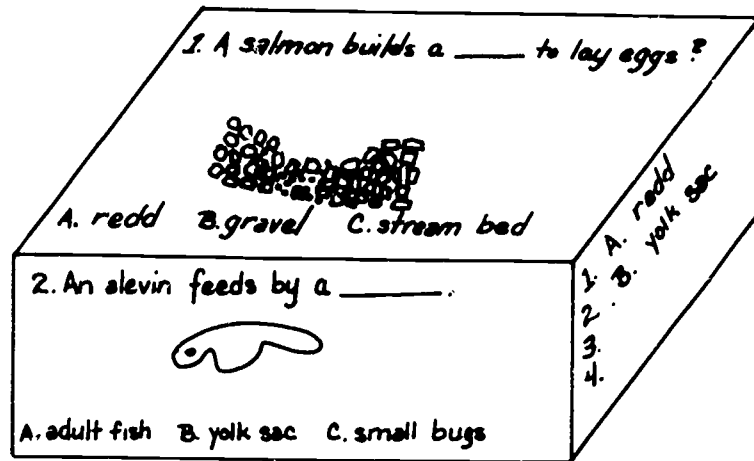 1. A salmon builds a ____ to lay eggs?
A. redd B. gravel C. stream bed
2. An alevin feeds by a ______.
A. adult fish B. yolk sac C. small bugs
1. A. redd
2. B. yolk sac
3.
4.